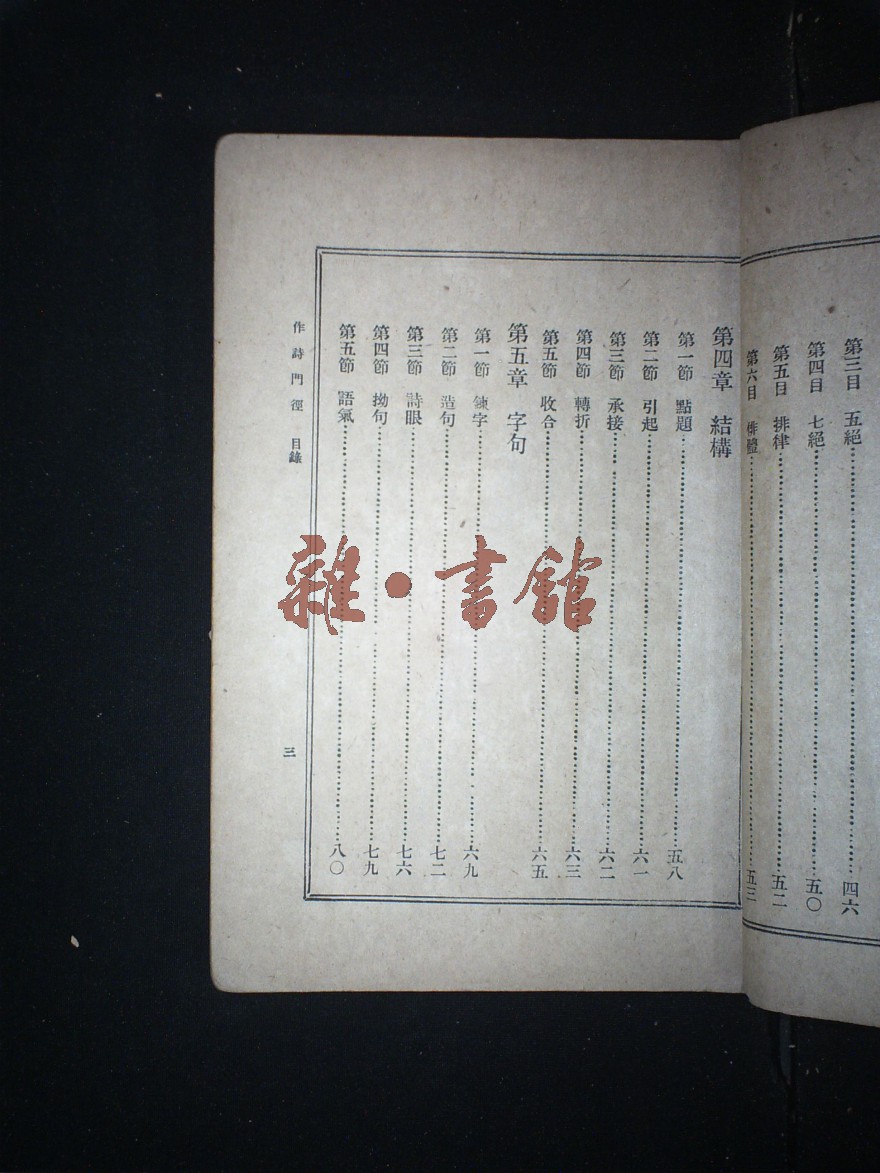 第三目　五絕……………………四六
第四目　七絕……………………五〇
第五目　排律……………………五二
第六目　俳體……………………五三
第四章　結構
第一節　點題……………………五八
第二節　引起……………………六一
第三節　承接……………………六二
第四節　轉折……………………六三
第五節　收合……………………六五
第五章　字句
第一節　鍊字……………………六九
第二節　造句……………………七二
第三節　詩眼……………………七六
第四節　拗句……………………七九
第五節　語氣……………………八〇
作詩門徑　目錄
三
雜·書館